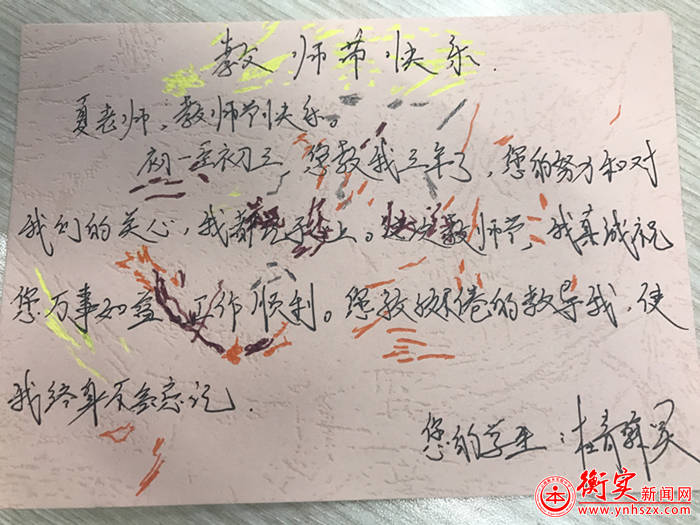 教师节快乐.
夏老师,教师节快乐。
初一至初三,您教我三年了,您的努力和对
我们的关心,我都 上。 教师节,我真诚祝
您万事如益 工作顺利。您 倦的教导我,使
我终身不会忘记.
您的学生:杜
衡实新闻网
www.ynhszx.com